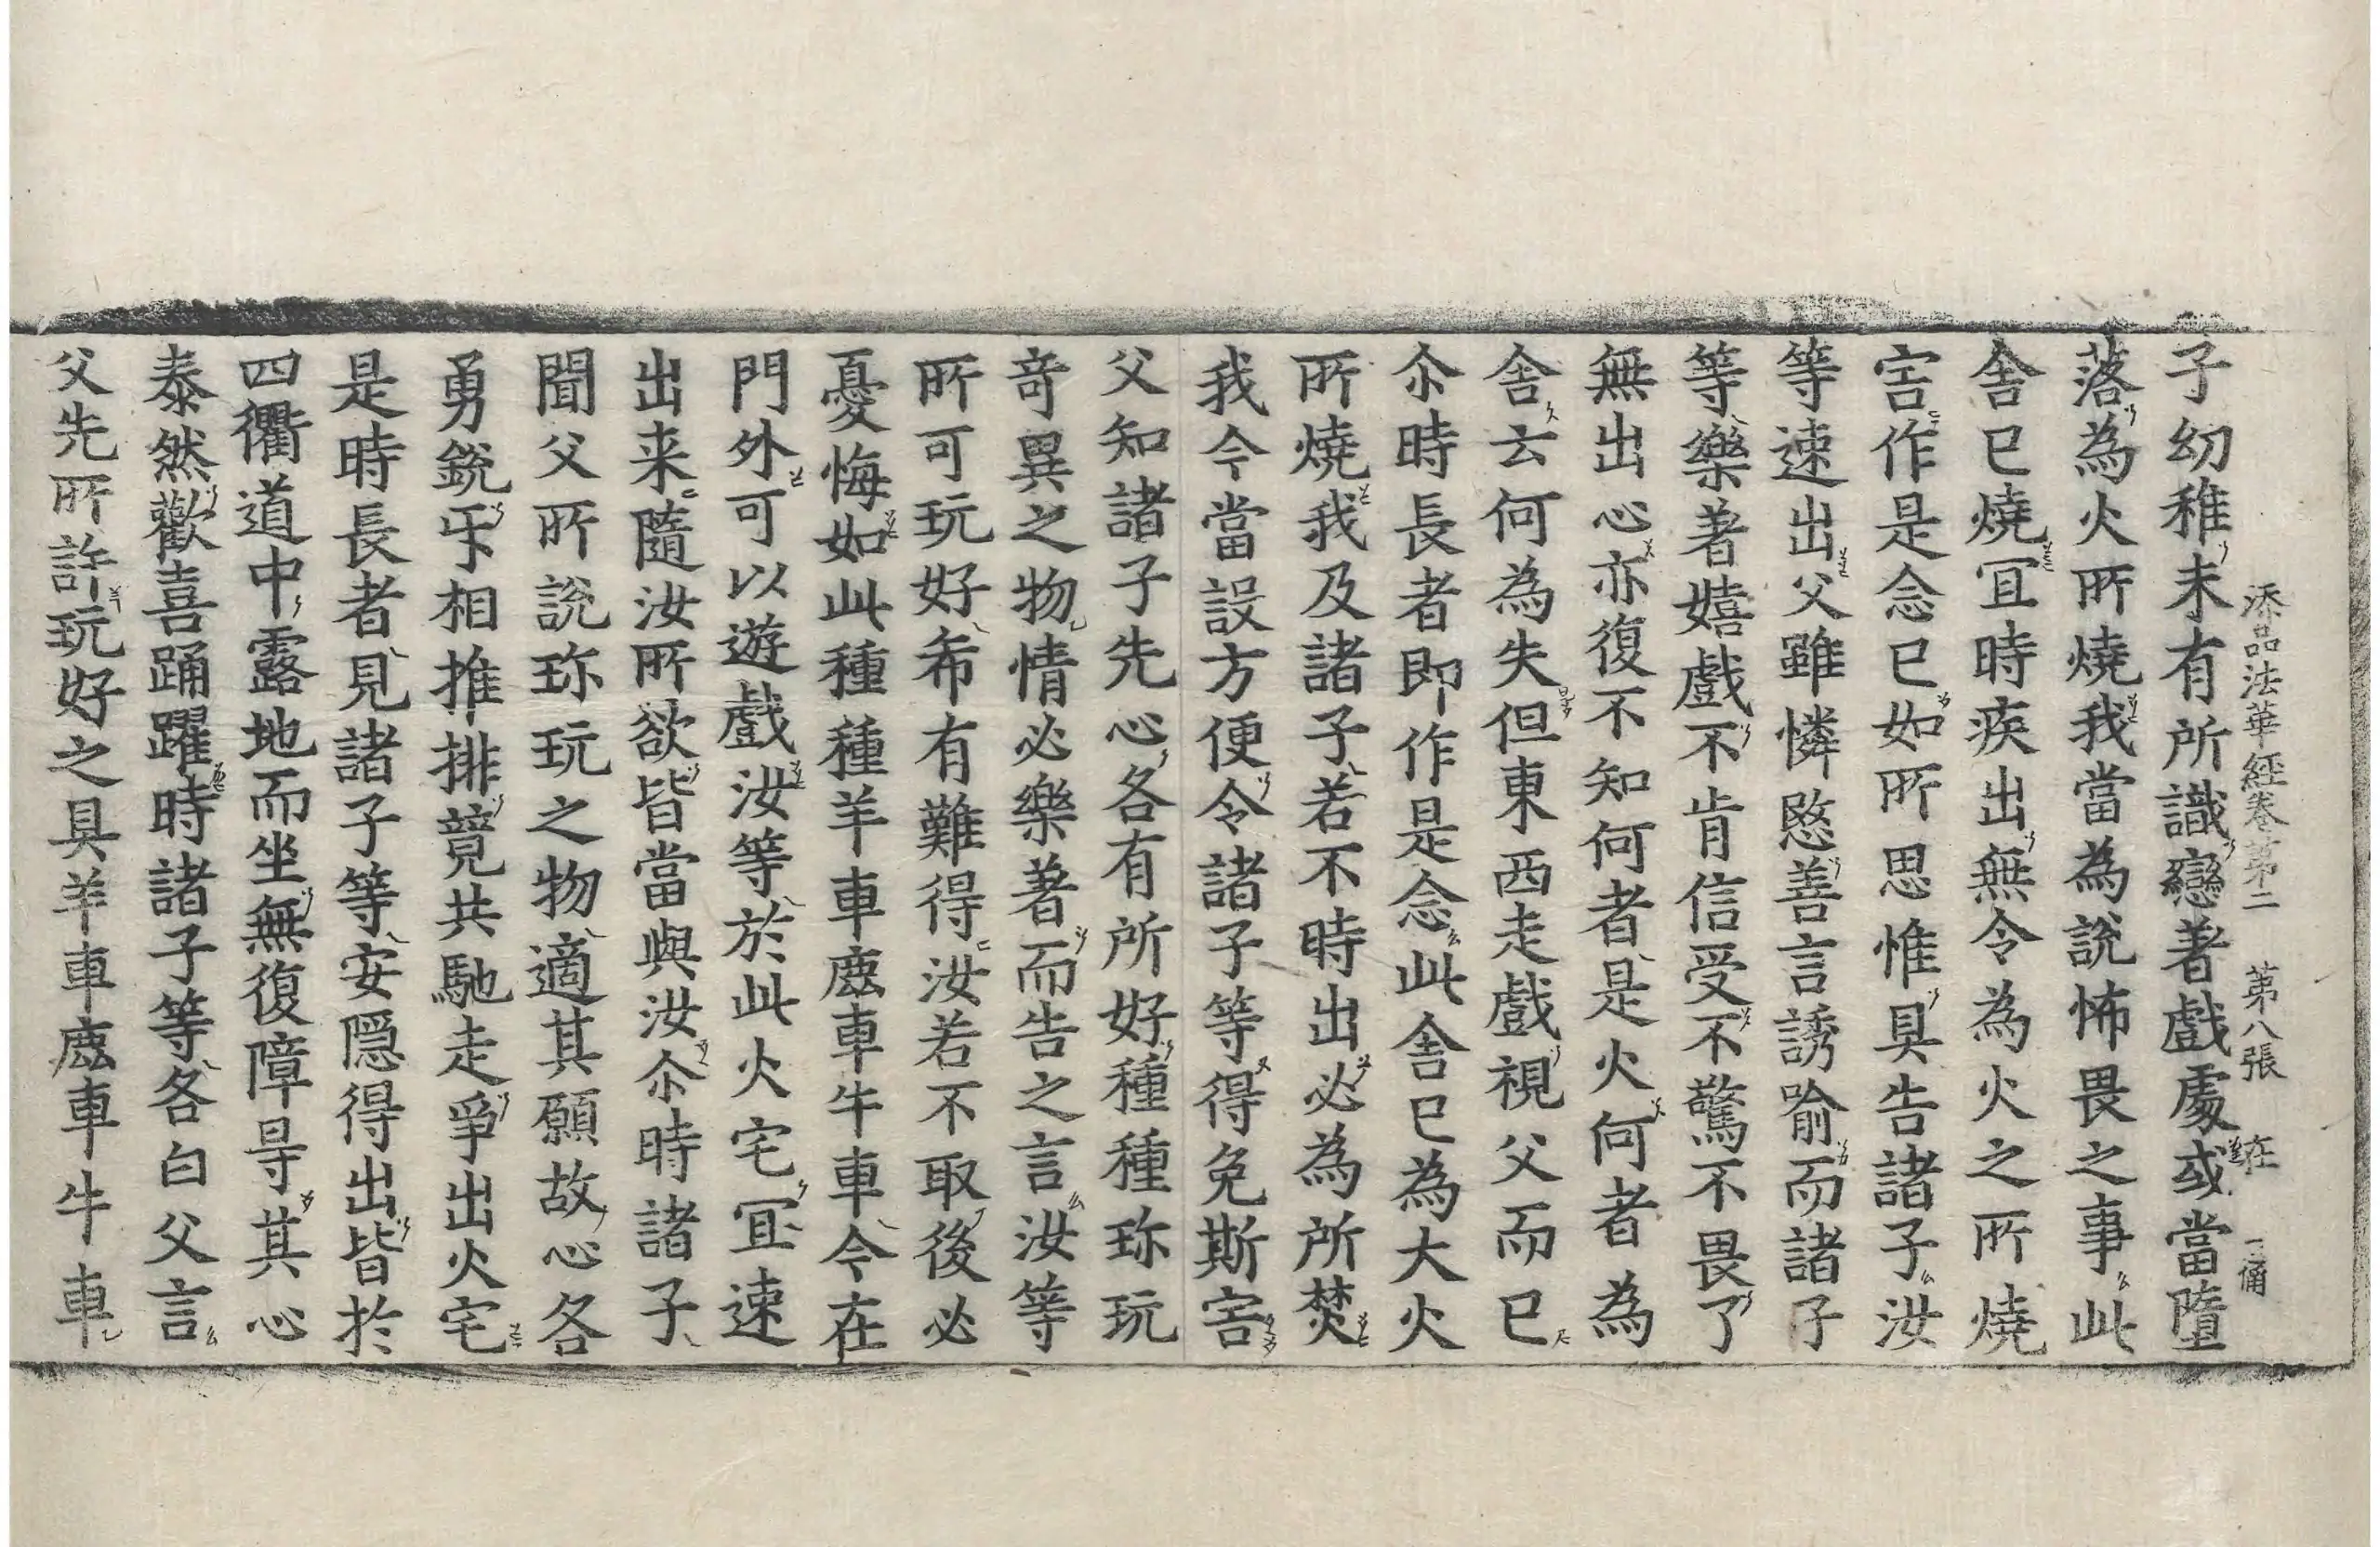 添品法華經卷第二 第八張 在
子幼稚未有所識戀著戲處或當墮
落為火所燒我當為說怖畏之事此
舍已燒冝時疾出無令為火之所燒
害作是念已如所思惟具告諸子汝
等速出父雖憐愍善言誘喻而諸子
等樂著嬉戲不肯信受不驚不畏了
無出心亦復不知何者是火何者為
舍云何為失但東西走戲視父而已
尒時長者即作是念此舍已為大火
所燒我及諸子若不時出必為所焚
我今當設方便令諸子等得免斯害
父知諸子先心各有所好種種珎玩
奇異之物情必樂著而告之言汝等
所可玩好希有難得汝若不取後必
憂悔如此種種羊車鹿車牛車今在
門外可以遊戲汝等於此火宅冝速
出来隨汝所欲皆當與汝尒時諸子
聞父所說珎玩之物適其願故心各
勇銳㸦相推排競共馳走爭出火宅
是時長者見諸子等安隱得出皆於
四衢道中露地而坐無復障㝵其心
泰然歡喜踊躍時諸子等各白父言
父先所許玩好之具羊車鹿車牛車